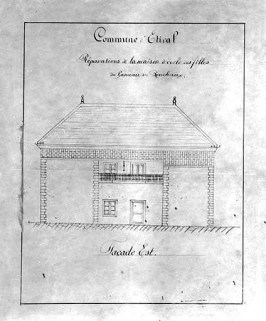 Commune d'Etival
Réparations à la maison d'école des filles
du hameau de
Façade Est.